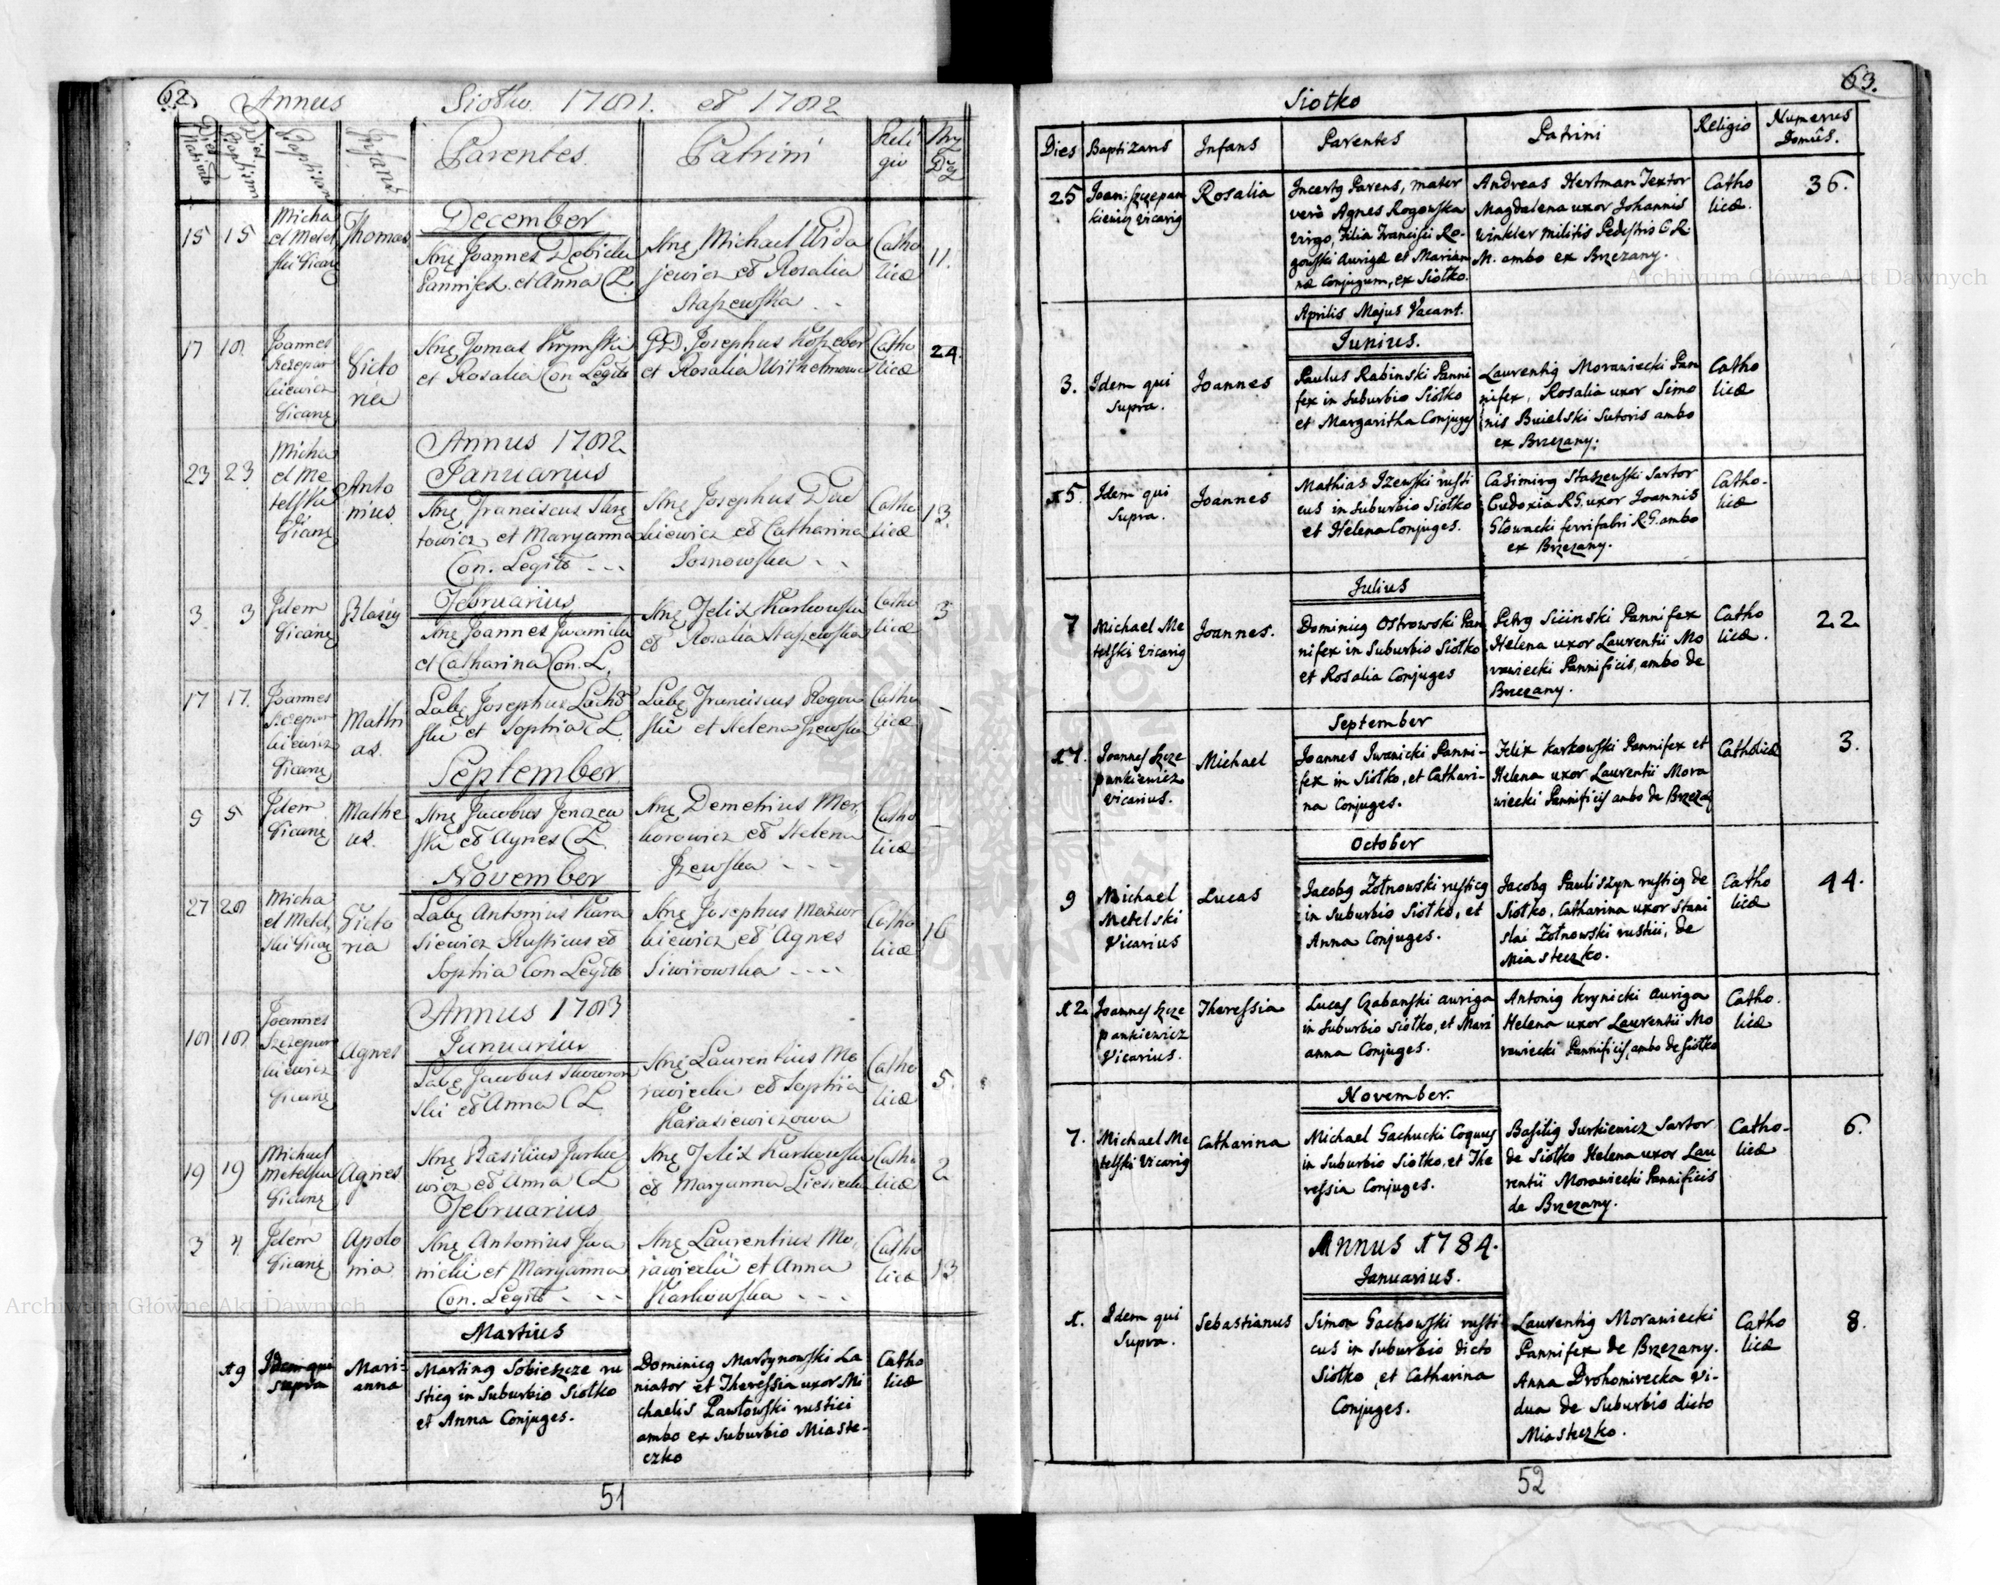 62.
Annus Siołko 1781. et 1782
Dies Nativit
Dies Baptism
Baptisan
Infans
Parentes.
Patrini
Reli
gio
Nrg
Dg
December
15 15 Micha
el Metel
ski Vicarg
Thomas
Hng Joannes Dobicki
Pannifex. et Anna C L.
Hng Michael Wida
jewicz et Rosalia
Staszewska
Catho
licæ
11.
17 18 Joannes
Szczepan
kiewicz
Vicarg
Victo
ria
Hng Tomas Krymski
et Rosalia Con Legite
Catho
licæ
24.
Annus 1782
Januarius
23 23 Micha
el Me
telski
Vicarg
Anto
nius.
et Maryanna
Con. Legite
Hng Josephus
et Catharina
Catho
licæ
13.
Februarius
3 3 Idem
Vicarg
Blasig
Hng Joannes Jwanicki
et Catharina Con. L.
Hng Felix Karkowski
et Rosalia Staszewska
Catho
licæ
3
17 17. Joannes
Szczepan
kiewicz
Vicarg
Mathi
as.
et Sophia C L.
Labg Franciscus Rogow
ski et Helena Jzewska
Catho
licæ
September
5 5 Idem
Vicarg
Mathe
us.
et Agnes C L.
Hng Demetrius
et Helena
Jzewska
Catho
licæ
November
27 28 Micha
el Metel
ski Vicarg
Victo
ria
Labg Antonius Kara
siewicz Rusticus et
Sophia Con Legite
Hng Josephus Mazur
kiewicz et Agnes
Catho
licæ
16
Annus 1783
Januarius
18 18 Joannes
Szczepan
kiewicz
Vicarg
Agnes
Labg Jacobus Skowron
ski et Anna C L.
Hng Laurentius Mo
rawiecki et Sophia
Karasiewiczowa
Catho
licæ
5.
19 19 Michael
Metelski
Vicarg
Agnes
Hng Basilius Jurkie
wicz et Anna C L
Hng Felix Karkowski
et Maryanna
Catho
licæ
2
Februarius
3 4 Idem
Vicarg
Apolo
nia
Hng Antonius Jwa
nicki et Maryanna
Con. Legite
Hng Laurentius Mo
rawiecki et Anna
Karkowska
Catho
licæ
13
Martius
19 Idem qui
supra
Mari-
anna
Marting Sobieszcze ru
sticg in Suburbio Siołko
et Anna Conjuges.
Dominicg Martynowski La
niator et Theressia uxor Mi
chaelis Pawłowski rustici
ambo ex Suburbio Miaste-
czko
Catho
licæ
51
63.
Siołko
Dies Baptizans Infans Parentes Patrini Religio Numerus
Domûs.
25 Joan: Szczepan
kiewicz Vicarig
Rosalia
Incertg Parens, mater
verò Agnes Rogowska
virgo, Filia Francisci Ro-
gowski Aurigæ et Marian
næ Conjugum, ex Siołko.
Andreas Hertman Textor
Magdalena uxor Johannis
Winkler militis Pedestris C. R.
M. ambo ex Brzezany.
Catho
licæ.
36.
Aprilis Majus Vacant.
Junius.
3. Idem qui
supra.
Joannes
Paulus Rabinski Panni
fex in Suburbio Siołko
et Margaritha Conjuges
Laurentig Morawiecki Pan
nifex, Rosalia uxor Simo
nis Buielski Sutoris ambo
ex Brzezany.
Catho
licæ
15. Idem qui
Supra.
Joannes
Mathias Jzewski rusti
cus in Suburbio Siołko
et Helena Conjuges.
Casimirg Staszewski Sartor
Eudoxia R.G. uxor Joannis
Głowacki ferrifabri R.G. ambo
ex Brzezany.
Catho-
licæ
Julius
7 Michael Me
telski Vicarig
Joannes.
Dominicg Ostrowski Pan
nifex in Suburbio Siołko
et Rosalia Conjuges
Petrg Sicinski Pannifex
Helena uxor Laurentii Mo
rawiecki Pannificis, ambo de
Brzezany.
Catho
licæ.
22
September
14. Joannes Szcze
pankiewicz
Vicarius.
Michael
Joannes Iwanicki Panni-
fex in Siołko, et Cathari-
na Conjuges.
Felix Karkowski Pannifex et
Helena uxor Laurentii Mora
wiecki Pannificis ambo de Brzezan
Catholicæ
3.
October
9 Michael
Metelski
Vicarius
Lucas
Jacobg Zołnowski rusticg
in Suburbio Siołko, et
Anna Conjuges.
Jacobg Pauliszyn rusticg de
Siołko, Catharina uxor Stani
slai Zołnowski rustici, de
Miasteczko.
Catho
licæ
44.
12. Joannes Szcze
pankiewicz
Vicarius.
Theressia
Lucas Czabanski auriga
in Suburbio Siołko, et Mari
anna Conjuges.
Antonig Krynicki auriga
Helena uxor Laurentii Mo
rawiecki Pannificis, ambo de Siołko
Catho.
licæ
November.
7. Michael Me
telski Vicarig
Catharina
Michael Gachucki Coquus
in Suburbio Siołko, et The
ressia Conjuges.
Basilig Jurkiewicz Sartor
de Siołko Helena uxor Lau
rentii Morawiecki Pannificis
de Brzezany.
Catho-
licæ
6.
Annus 1784.
Januarius.
1. Idem qui
Supra.
Sebastianus
Simon Gachowski rusti
cus in Suburbio dicto
Siołko, et Catharina
Conjuges.
Laurentig Morawiecki
Pannifex de Brzezany.
Anna Drohomirecka Vi-
dua de Suburbio dicto
Miasteczko.
Catho
licæ
8.
52
Archiwum Główne Akt Dawnych
Archiwum Główne Akt Dawnych